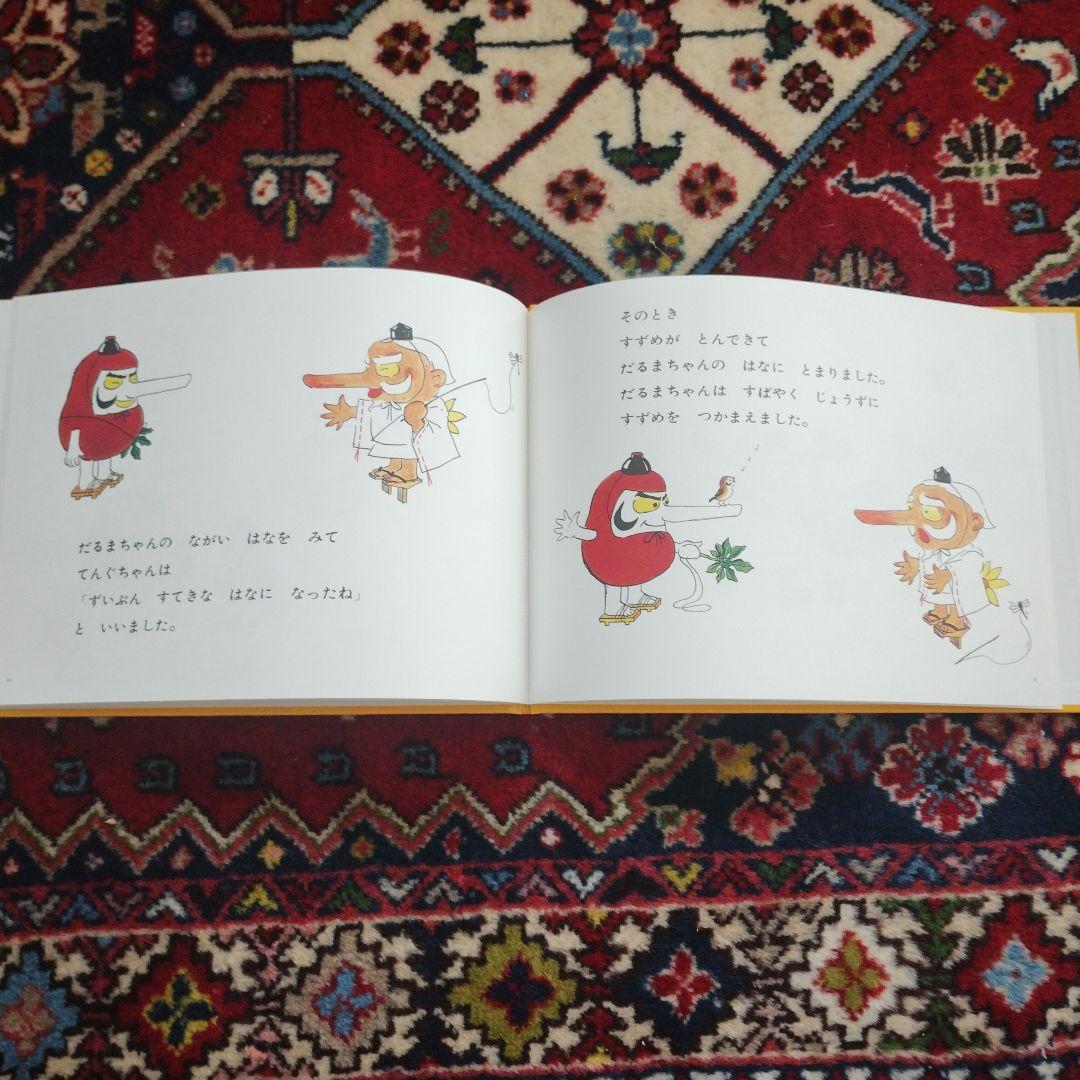 だるまちゃんの　ながい　はなを　みて
てんぐちゃんは
「ずいぶん　すてきな　はなに　なったね」
と　いいました。
そのとき
すずめが　とんできて
だるまちゃんの　はなに　とまりました。
だるまちゃんは　すばやく　じょうずに
すずめを　つかまえました。